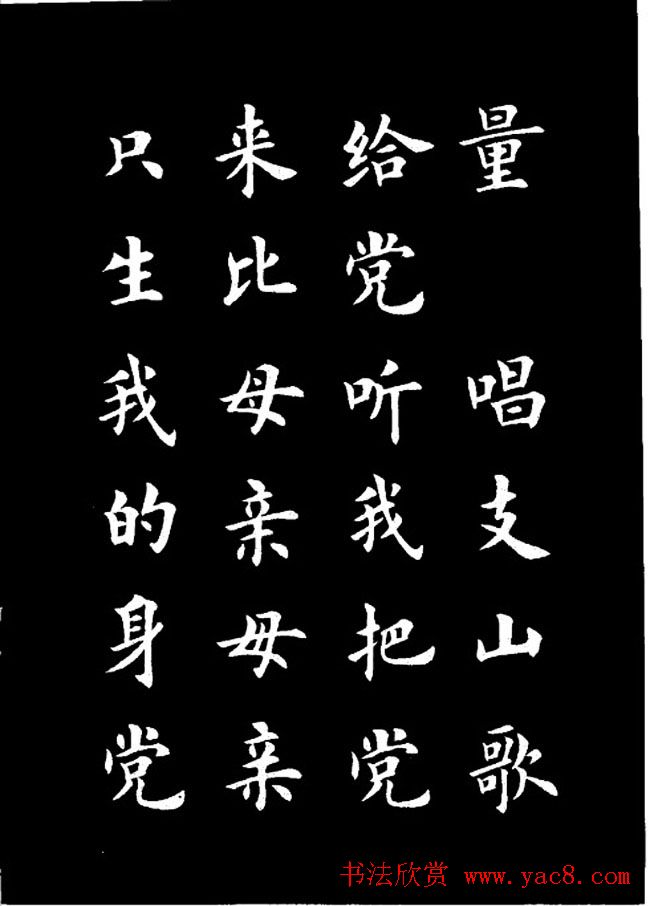 量 唱支山歌
给党听我把党
来比母亲母亲
只生我的身党
书法欣赏 www.yac8.com